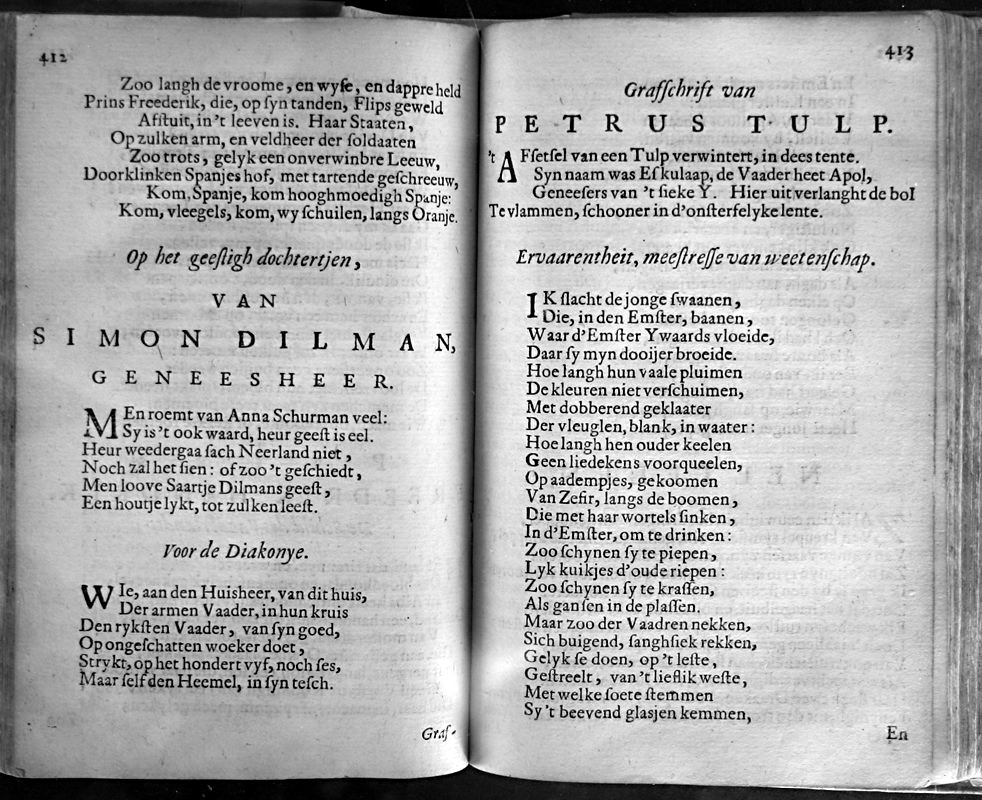 412
Zoo langh de vroome, en wyſe, en dappre held
Prins Freederik, die, op ſyn tanden, Flips geweld
Afſtuit, in 't leeven is. Haar Staaten,
Op zulken arm, en veldheer der ſoldaaten
Zoo trots, gelyk een onverwinbre Leeuw,
Doorklinken Spanjes hof, met tartende geſchreeuw,
Kom, Spanje, kom hooghmoedigh Spanje:
Kom, vleegels, kom, wy ſchuilen, langs Oranje.
Op het geeſtigh dochtertjen,
VAN
SIMON DILMAN,
GENEESHEER.
MEn roemt van Anna Schurman veel:
Sy is 't ook waard, heur geeſt is eel.
Heur weedergaa ſach Neerland niet,
Noch zal het ſien: of zoo 't geſchiedt,
Men loove Saartje Dilmans geeſt,
Een houtje lykt, tot zulken leeſt.
Voor de Diakonye.
WIe, aan den Huisheer, van dit huis,
Der armen Vaader, in hun kruis
Den rykſten Vaader, van ſyn goed,
Op ongeſchatten woeker doet,
Strykt, op het hondert vyf, noch ſes,
Maar ſelf den Heemel, in ſyn teſch.
Graf-
413
Graffchrift van
PETRUS TULP.
't AFſetſel van een Tulp verwintert, in dees tente.
Syn naam was Eſkulaap, de Vaader heet Apol,
Geneeſers van 't ſieke Y. Hier uit verlanght de bol
Te vlammen, ſchooner in d'onſterfelyke lente.
Ervaarentheit, meeſtreſſe van weetenſchap.
IK ſlacht de jonge ſwaanen,
Die, in den Emſter, baanen,
Waar d'Emſter Ywaards vloeide,
Daar ſy myn dooijer broeide.
Hoe langh hun vaale pluimen
De kleuren niet verſchuimen,
Met dobberend geklaater
Der vleuglen, blank, in waater:
Hoe langh hen ouder keelen
Geen liedekens voorqueelen,
Op aadempjes, gekoomen
Van Zefir, langs de boomen,
Die met haar wortels ſinken,
In d'Emſter, om te drinken:
Zoo ſchynen ſy te piepen,
Lyk kuikjes d'oude riepen:
Zoo ſchynen ſy te kraſſen,
Als ganſen in de plaſſen.
Maar zoo der Vaadren nekken,
Sich buigend, ſanghſiek rekken,
Gelyk ſe doen, op 't leſte,
Geſtreelt, van 't lieflik weſte,
Met welke ſoete ſtemmen
Sy 't beevend glasjen kemmen,
En